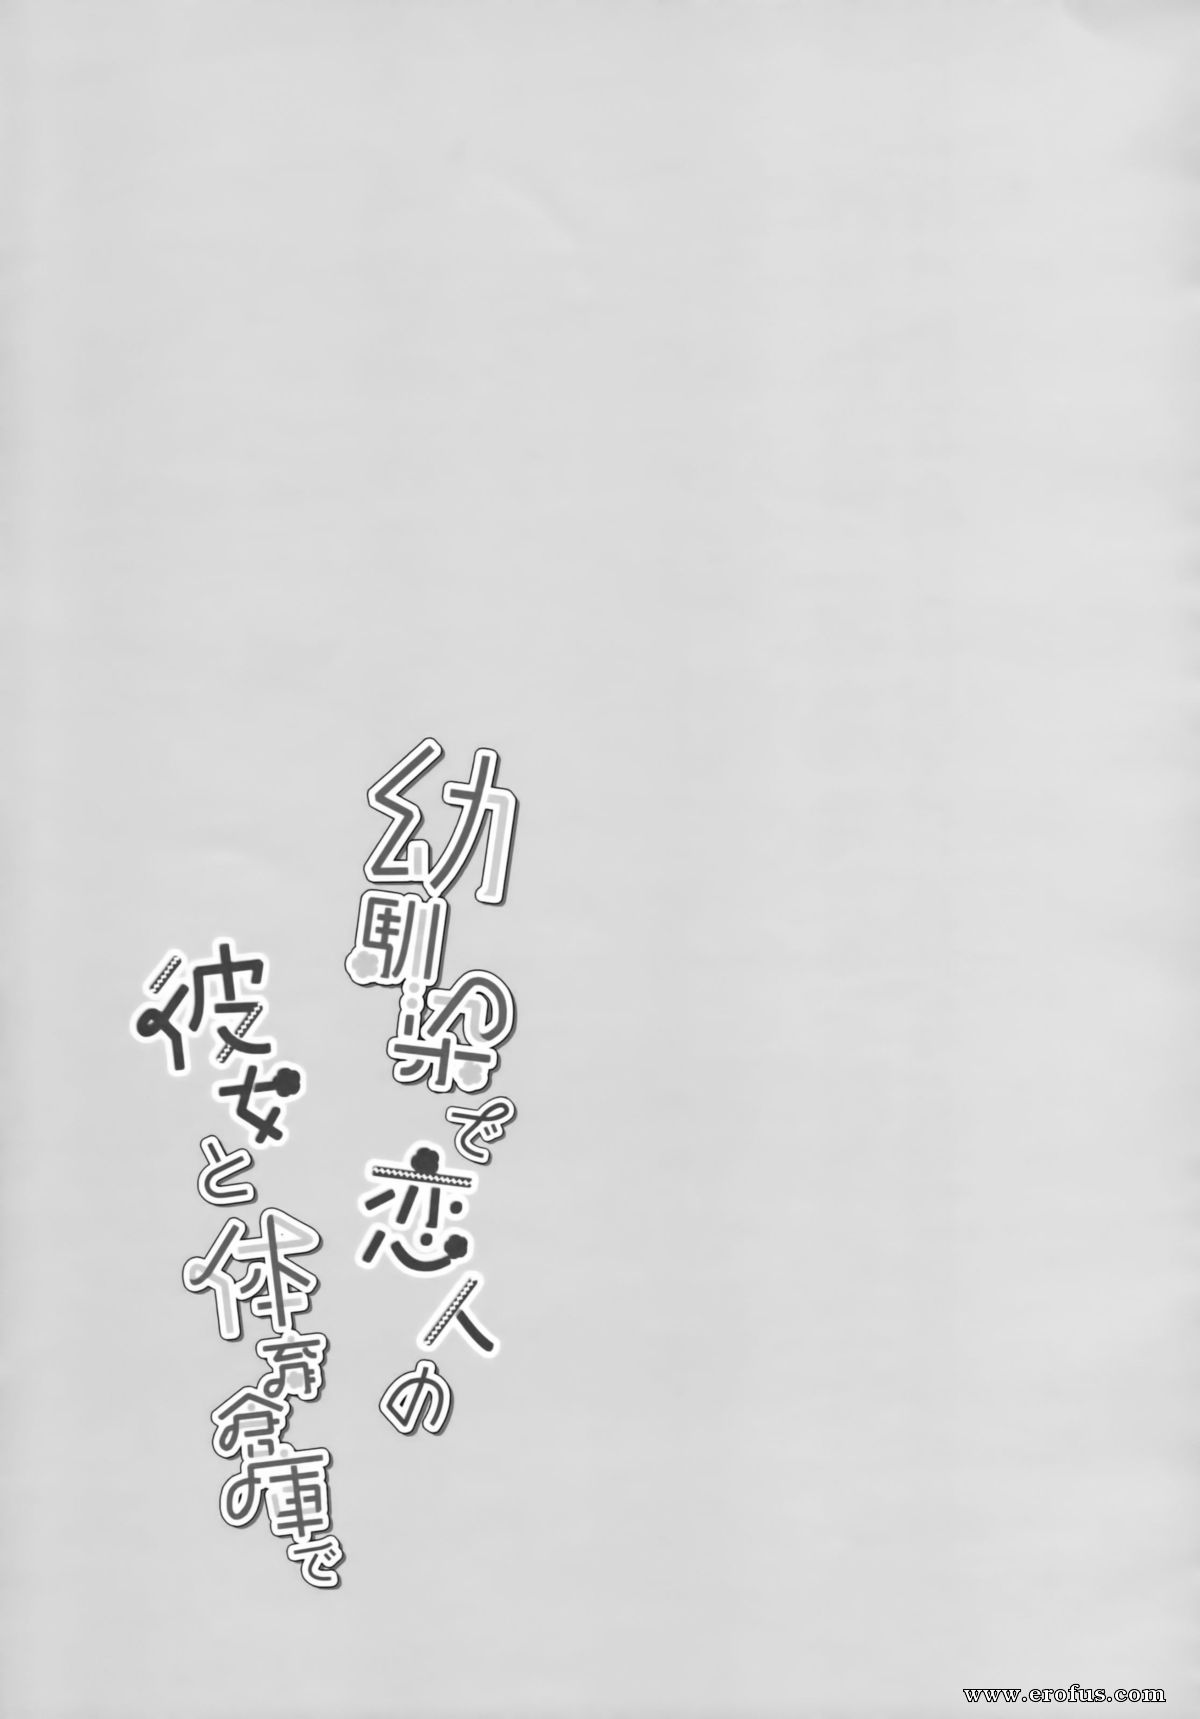 幼馴染で恋人の
彼女と体育倉庫で
www.erofus.com